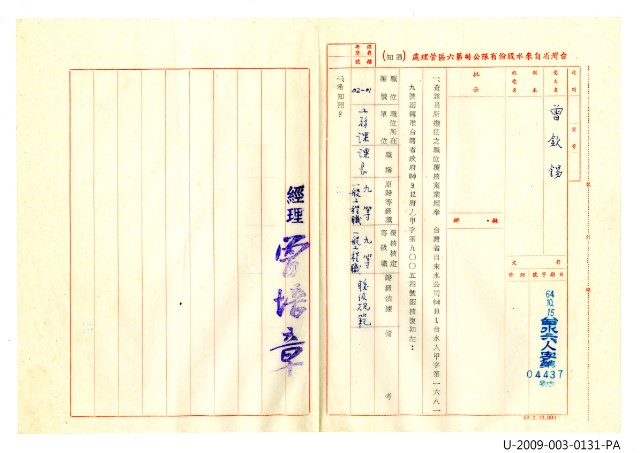 台灣省自來水股份有限公司第六區管理處
(通知)
受文者
副本
收受者
批示
曾欽錫
擬辦
文
日期
字號
附件
64.10.15
台水六人字第
04437
號
一、查該員所擔任之職位覆核案業經奉 台灣省自來水公司64.10.1台水人甲字第一六八一
九號函轉准台灣省政府64.9.12府人甲字第九〇〇五四號函核復如左:
職位編號
職位所在單位
職務
原歸等級職
覆核核定等級職
歸級依據
備考
02-01
工務課
課長
九等
一般工程職
九等
一般工程職
職級規範
二、希知照。
經理 曾培章
U-2009-003-0131-PA